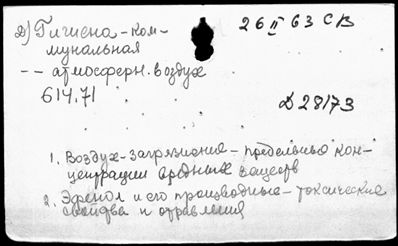 2) Гигиена - ком-
мунальная
-- атмосферн. воздух
614.71
26 II 63 СВ
Д 28173
1. Воздух - загрязнение - предельные кон-
центрации вредных веществ
2. и его производные - токсические
свойства и отравления